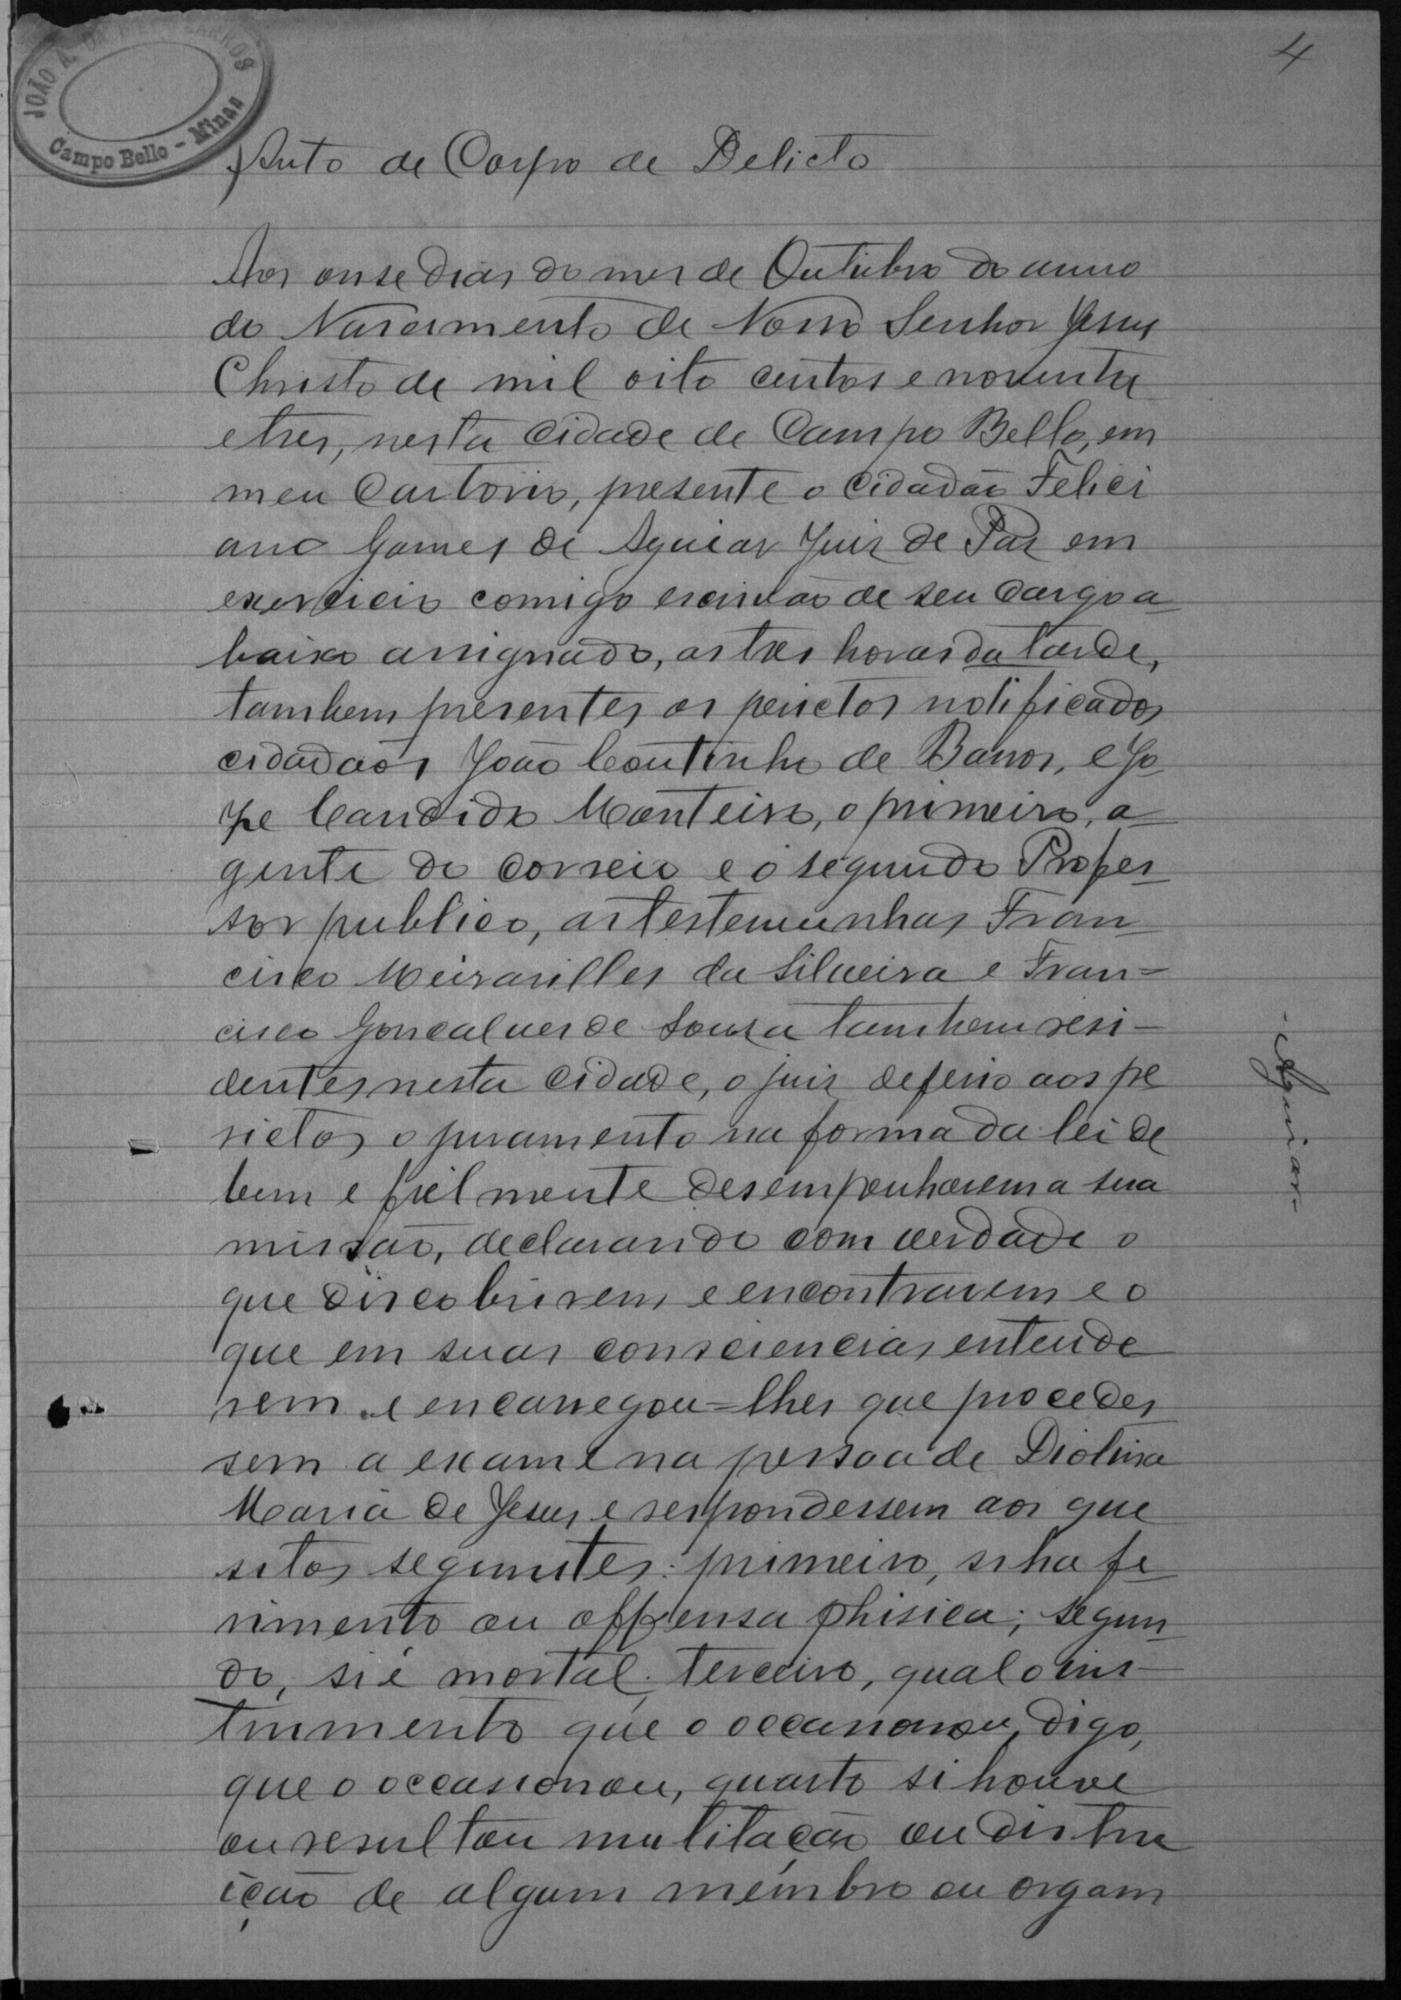 4
JOÃO A. DE BARROS
Campo Bello - Minas
Auto de Corpo de Delicto
Aos onse dias do mes de Outubro do anno
do Nascimento de Nosso Senhor Jesus
Christo de mil oito centos e noventa
e tres, nesta Cidade de Campo Bello, em
meu Cartorio, presente o Cidadão Felici
ano Gomes de Aguiar Juiz de Paz em
exercicio comigo escrivão de seu cargo a=
baixo assignado, as tres horas da tarde,
tambem presentes os perictos notificados
cidadaõs João Coutinho de Barros, e Jo
se Candido Monteiro, o primeiro, a=
gente do correio e o segundo Profes=
sor publico, as testemunhas Fran=
cisco Meirarilles da Silveira e Fran=
cisco Goncalves de Souza tambem resi-
dentes nesta cidade, o juiz deferio aos pe
rictos o juramento na forma da lei de
bem e fielmente desempenharem a sua
missão, declarando com verdade o
que discobrirem e encontrarem e o
que em suas consciencias entende
rem e encarregou=lhes que procedes
sem a exame na pessoa de Diolina
Maria de Jesus e respondessem aos que
sitos seguintes: primeiro, si ha fe
rimento ou offensa phisica; segun-
do, si é mortal; terceiro, qual o ins-
trumento que o occasionou, digo,
que o occasionou, quarto si houve
ou resultou mutilação ou distru
ição de algum membro ou orgam
-Aguiar-